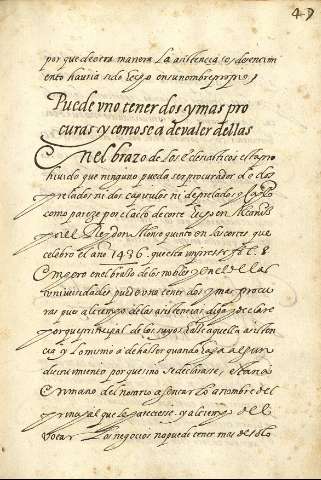 49
por que de otra manera la asistencia, o disentim
iento hauria sido hecho en su nombre proprio,
Puede vno tener dos y mas pro
curas, y como se a de valer dellas
En el brazo de los Eclesiasticos esta pro
hiuido que ninguno pueda ser procurador de dos
prelados ni dos capitulos ni de prelado y Cap.lo
como pareze por el acto de corte hecho en Alcañiz
por el Rey don Alonso quinto en las cortes que
celebro el año 1436. que esta impreso fo.
Empero en el brazo de los nobles, y en el de las
vniuersidades puede vno tener dos y mas procu
ras pero al tiempo de las asistencias diga y declare
por que principal de los suyos haze aquella asisten
cia, y lo mismo a de hazer quando haga algun
disentimiento por que si no se declarase, esta en
mano del notario asentarlo a nombre del
principal que le pareciesse, y al tiempo de
votar los negocios no puede tener mas de solo